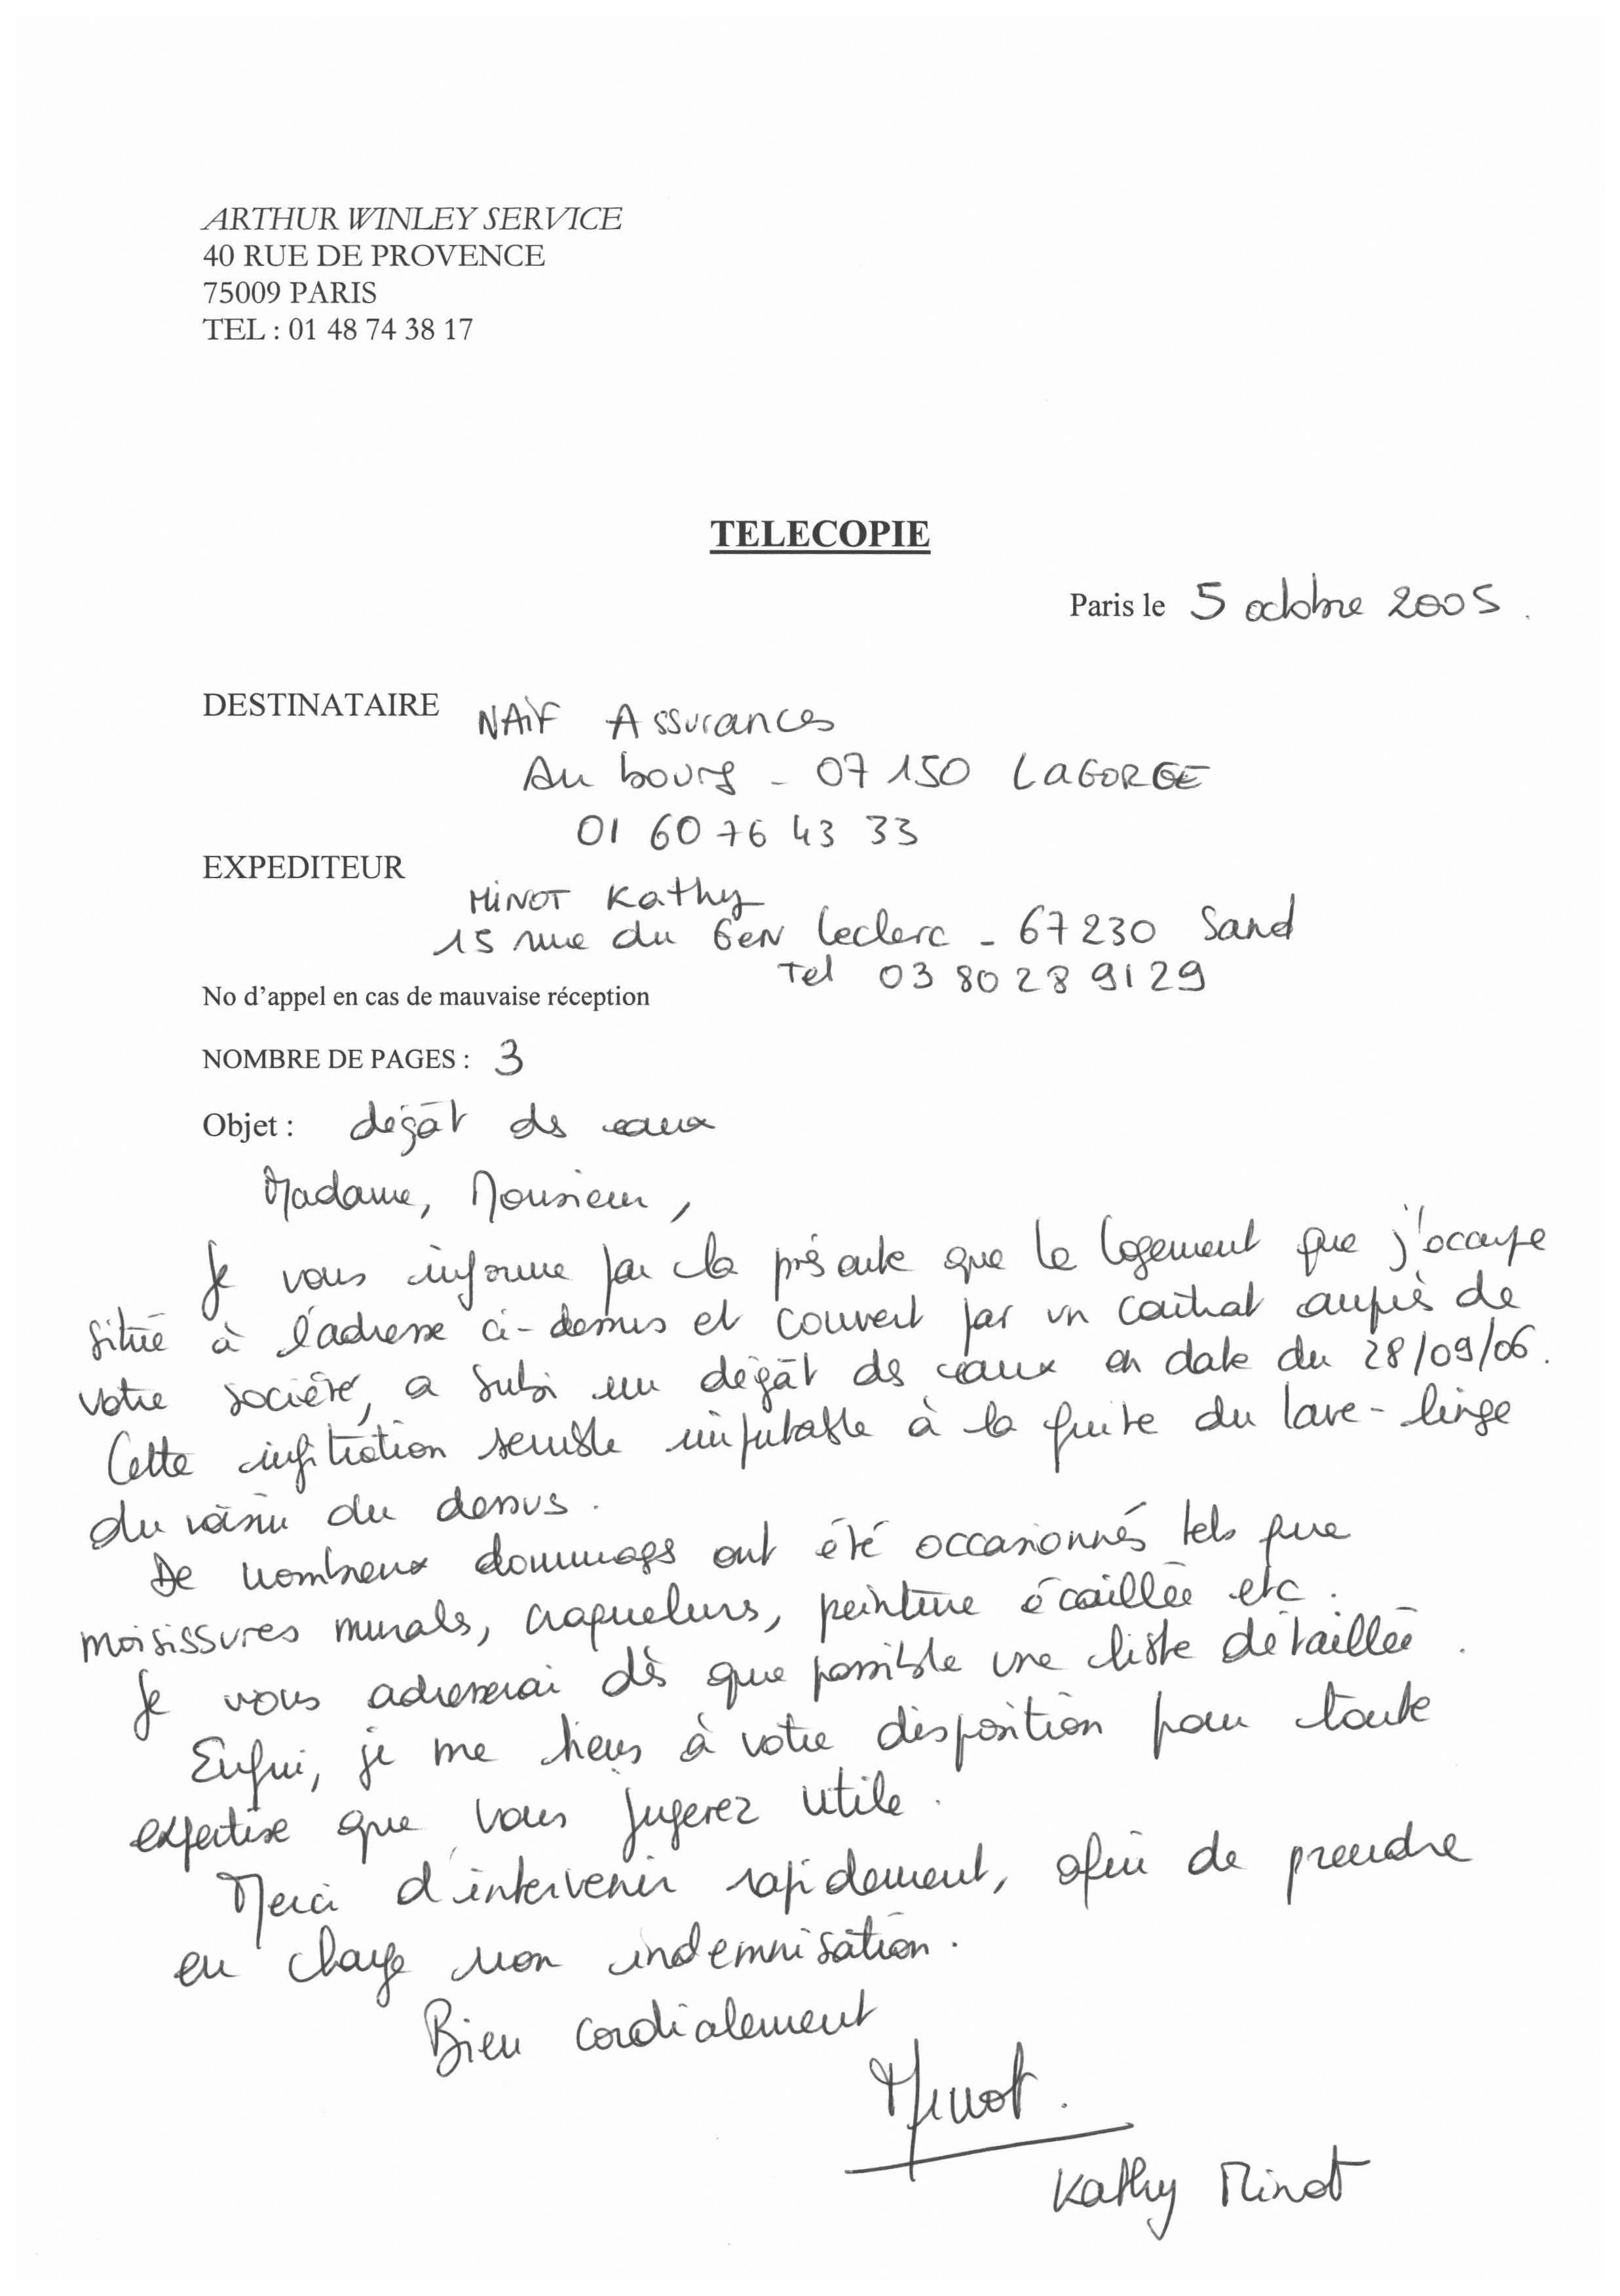 ARTHUR WINLEY SERVICE
40 RUE DE PROVENCE
75009 PARIS
TEL : 01 48 74 38 17
TELECOPIE
Paris le 5 octobre 2005.
DESTINATAIRE NAïF Assurances
Au bourg - 07150 LAGORGE
01 60 76 43 33
EXPEDITEUR
MiNOT Kathy
15 rue du GeN Leclerc - 67230 Sand
Tel 03 80 28 91 29
No d'appel en cas de mauvaise réception
NOMBRE DE PAGES : 3
Objet : dégât des eaux
Madame, Monsieur,
Je vous informe par la présente que le logement que j'occupe
situé à l'adresse ci-dessus et couvert par un contrat auprès de
votre société, a subi un dégât des eaux en date du 28/09/06.
Cette infiltration semble imputable à la fuite du lave-linge
du voisin du dessus.
De nombreux dommages ont été occasionnés tels que
moisissures murales, craquelures, peinture écaillée etc.
Je vous adresserai dès que possible une liste détaillée.
Enfin, je me tiens à votre disposition pour toute
expertise que vous jugerez utile.
Merci d'intervenir rapidement, afin de prendre
en charge mon indemnisation.
Bien cordialement
Minot.
Kathy Minot